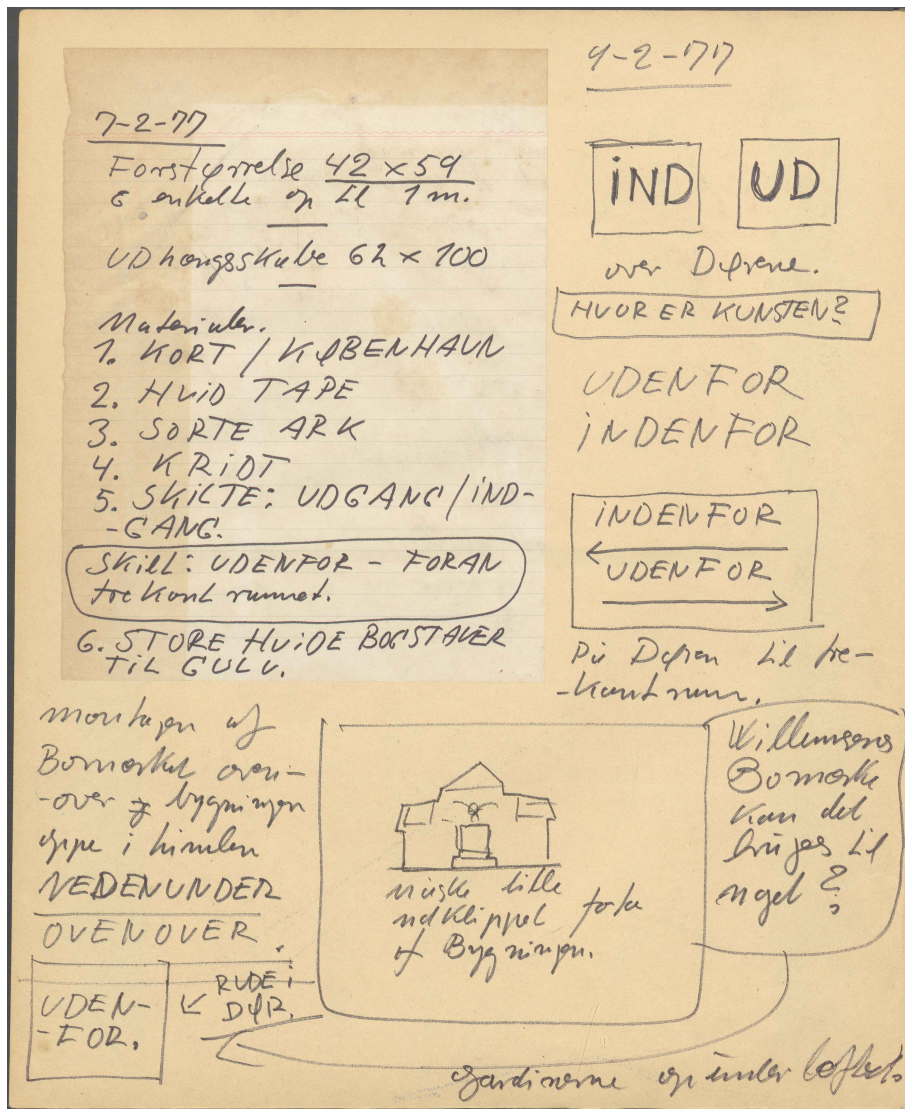 7-2-77
Forstørrelse 42 x 59
enkelte op til 1 m.
UDhængsskabe 62 x 100
Materialer.
1. KORT / KØBENHAVN
2. HVID TAPE
3. SORTE ARK
4. KRIDT
5. SKILTE: UDGANG / IND-
-GANG.
SKILT: UDENFOR - FORAN
trekantrummet.
6. STORE HVIDE BOGSTAVER
TIL GULV.
9-2-77
IND UD
over Dørene.
HVOR ER KUNSTEN?
UDENFOR
INDENFOR
INDENFOR
UDENFOR
På Døren til tre-
-kantrum.
montagen af
Bomærket oven-
-over bygningen
oppe i himlen
NEDENUNDER
OVENOVER.
UDEN-
-FOR.
RUDE i
DØR.
måske lille
udklippet foto
af Bygningen.
Willumsens
Bomærke
kan det
bruges til
noget?
gardinerne op under loftet.